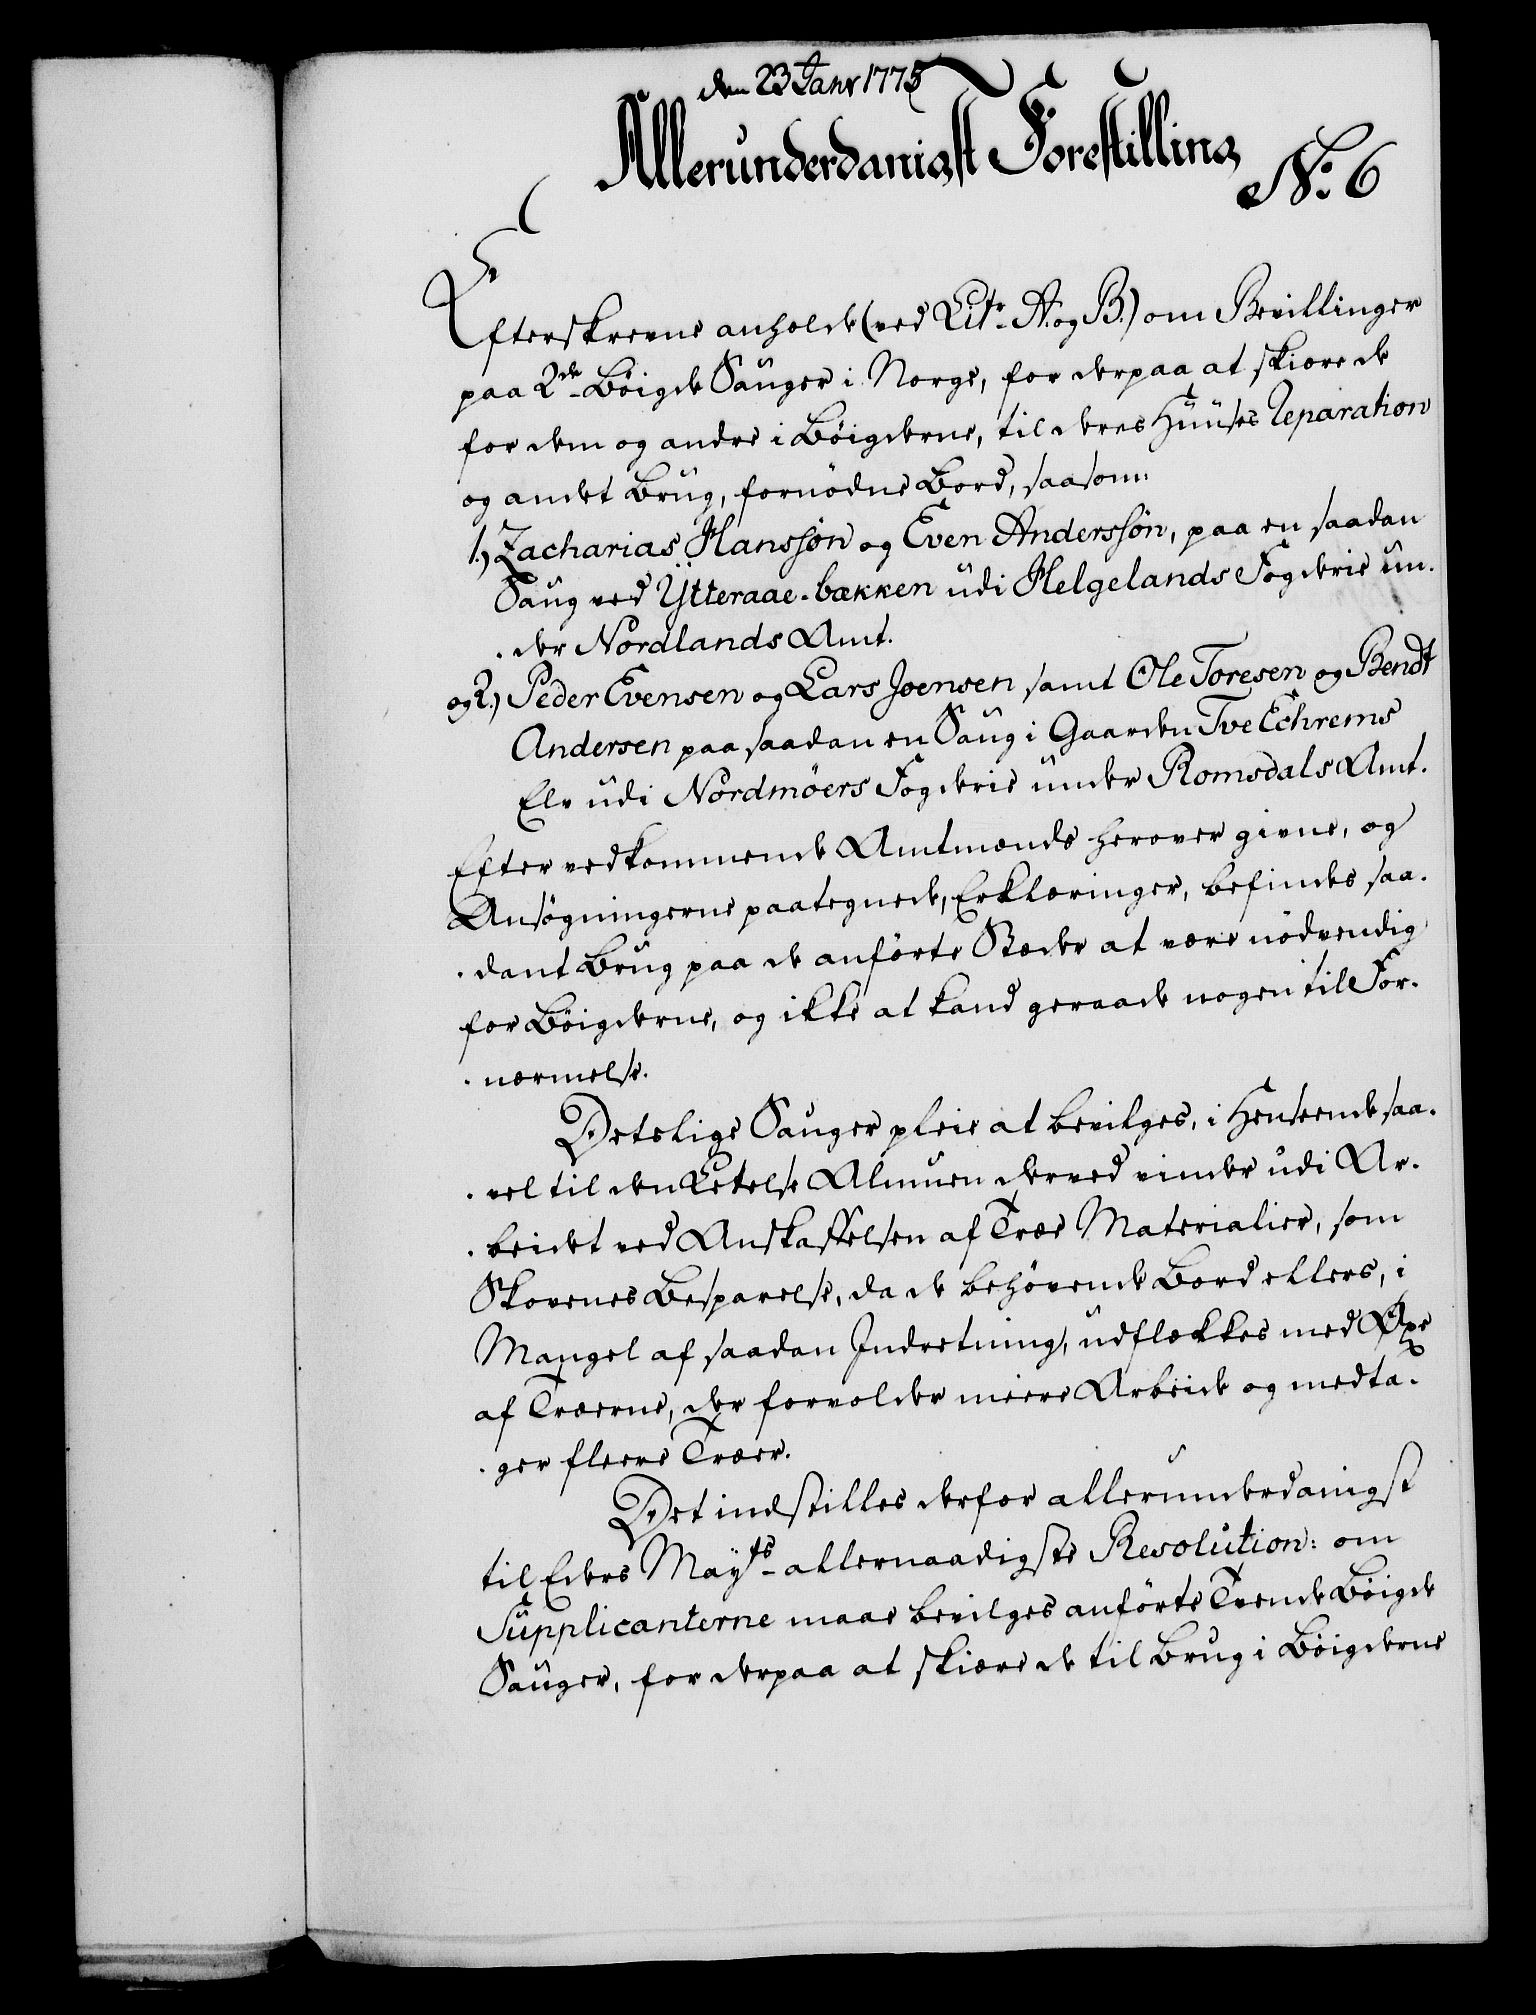 den 23 Janr 1775
Allerunderdanigst Forestilling
No. 6
Efterskrevne anholde (ved Litr. A. og B.) om Bevillinger
paa 2de Böigde Sauger i Norge, for derpaa at skiære de
for dem og andre i Böigderne, til deres Huuses Reparation
og andet Brug, fornödne Bord, saasom:
1.) Zacharias Hanssön og Even Anderssön, paa en saadan
Saug ved Ÿtteraae-bækken udi Helgelands Fogderie un-
-der Nordlands Amt.
og 2.) Peder Evensen og Lars Joensen samt Ole Toresen og Bendt
Andersen paa saadan en Saug i Gaarden Tve Echrems
Elv udi Nordmöers Fogderie under Romsdals Amt.
Efter vedkommende Amtmænds herover givne, og
Ansögningerne paategnede, Erklæringer, befindes saa-
-dant Brug paa de anförte Stæder at være nödvendig
for Böigderne, og ikke at kand geraade nogen til For-
-nærmelse.
Detslige Sauger pleie at bevilges, i Henseende saa-
-vel til den Letelse Almuen derved vinder udi Ar-
-beidet ved Anskaffelsen af Træe Materialier, som
Skovenes Besparelse, da de behövende Bord ellers, i
Mangel af saadan Indretning, udflækkes med Öxe
af Træerne, der forvolder meere Arbeide og medta-
-ger fleere Træer.
Det indstilles derfor allerunderdanigst
til Eders Mayts allernaadigste Resolution: om
Supplicanterne maae bevilges anförte Tvende Böigde
Sauger, for derpaa at skiære de til Brug i Böigderne